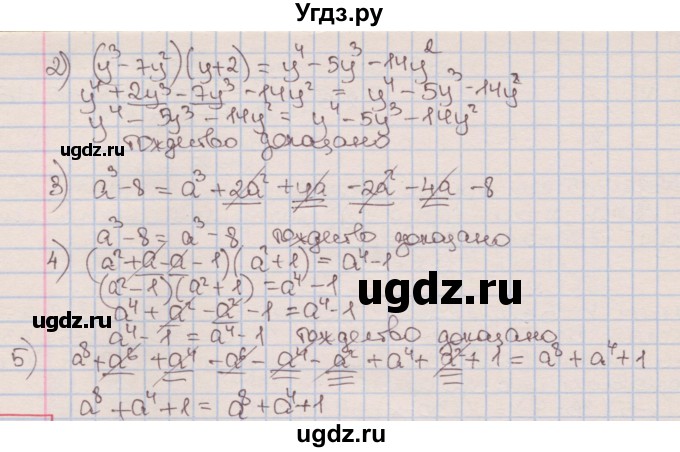 Угдз.ру
2) (y³ - 7y²)(y+2) = y⁴ - 5y³ - 14y²
y⁴ + 2y³ - 7y³ - 14y² = y⁴ - 5y³ - 14y²
y⁴ - 5y³ - 14y² = y⁴ - 5y³ - 14y²
тождество доказано
ugdz.ru
3) a³ - 8 = a³ + 2a² + 4a - 2a² - 4a - 8
a³ - 8 = a³ - 8 тождество доказано
4) (a² + a - a - 1)(a² + 1) = a⁴ - 1
(a² - 1)(a² + 1) = a⁴ - 1
ugdz.ru
a⁴ + a² - a² - 1 = a⁴ - 1
ugdz.ru
a⁴ - 1 = a⁴ - 1 тождество доказано
5) a⁸ + a⁶ + a⁴ - a⁶ - a⁴ - a² + a⁴ + a² + 1 = a⁸ + a⁴ + 1
ugdz.ru
a⁸ + a⁴ + 1 = a⁸ + a⁴ + 1
ugdz.ru